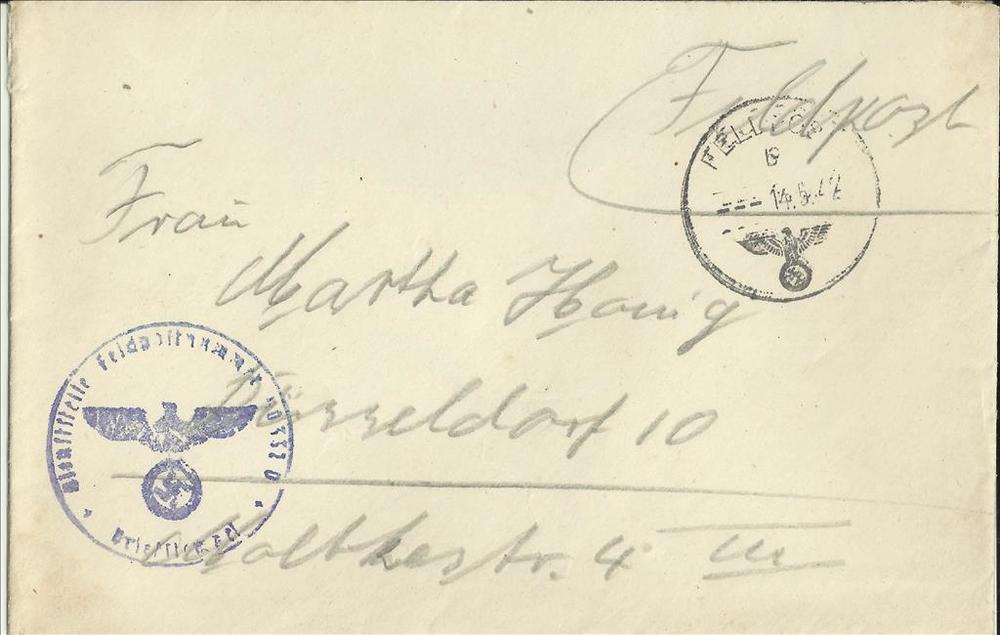 Feldpost
FELDPOST
b
14.5.42
Frau
Martha Honig
Düsseldorf 10
Moltkestr. 4 III
Dienststelle Feldpostnummer
Briefstempel